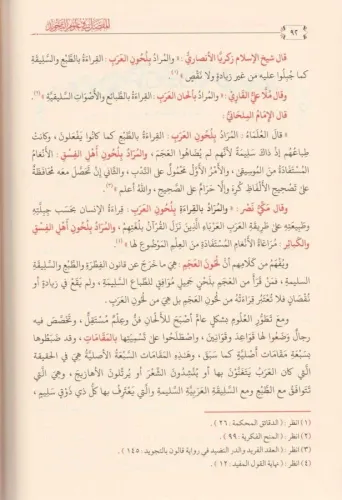 ٩٢
قال شيخ الإسلام زكريا الأنصاري : « والمراد بِلُحُونِ العَرَبِ : القِرَاءَةُ بِالطَّبْعِ وَالسَّلِيقَةِ
كما جُبِلُوا عليه من غير زيادةٍ ولا نَقْصٍ »(١).
وقال ملَّا علي القَارِي : « المراد بألحان العرب : القراءة بالطبائع والأصوات السليقية »(٢).
قال الإمَامُ
« قال العلماءُ : المرَادُ بِلُحُونِ العرب : القراءة بالطبع كما كانوا يفعلون، وكانت
طباعُهُم إذ ذاك سليمة لأنهم لم يُضَاهوا العَجَمَ، والمراد بِلُحُونِ أَهْلِ الفِسْقِ : الأنغامُ
المستفادة مِنَ الموسيقى، والأمرُ الأوَّلُ محمولٌ على النَّدْبِ، والثاني إنْ حَصَلَ معه محافظةٌ
على تصحيح الألفاظ كُرِهَ وإلَّا حَرَامٌ على الصَّحيحِ، واللهُ أعلم »(٣).
وقال مَكِّيّ نَصْر : « والمرادُ بالقراءة بِلُحُونِ العرب : قِرَاءَةُ الإنسانِ بحسب جِبِلَّتِهِ
وطبيعته على طريقة العرب العرباء الَّذين نَزَلَ القرآنُ بلغتهم، والمراد بِلُحُونِ أهل الفِسْقِ
والكَبَائِرِ : مُراعَاةُ الأنغام المستفادة مِنَ العِلْمِ الموضُوعِ لها »(٤).
ويُفْهَمُ من كلامهم أنَّ لُحُونَ العَجَمِ : هي ما خَرَجَ عن قانون الفِطْرَةِ والطَّبْعِ والسَّلِيقَةِ
السليمة، فمَنْ قَرَأَ من العَجَمِ بِلَحْنٍ جميلٍ مُوَافِقٍ للطِّبَاعِ السليمة، ولم يَقَعْ في زيادةٍ أو
نُقْصَانٍ فلا تُعْتَبَرُ قِرَاءَتُهُ من لُحُونِ العَجَمِ بل هي من لُحُونِ العَرَبِ.
ومع تَطَوُّرِ العُلُومِ بشكلٍ عامٍّ أصْبَحَ للألحانِ فنٌّ وعِلْمٌ مُسْتَقِلٌّ، وتَخَصَّصَ فيه
رجالٌ وَضَعُوا لها قواعدَ وقوانينَ، واصْطَلَحُوا على تسميتها بالمَقَامَاتِ، وقد ضَبَطُوها
بِسَبْعَةِ مَقَاماتٍ أصليَّةٍ كما سَبَقَ، وهَذِهِ المقامات السبعة الأصليَّة هي في الحقيقة
التي كان العَرَبُ يَتَغَنَّوْنَ بها أو يُنْشِدُونَ الشِّعْرَ أو يُرَتِّلُونَ الأهازيجَ، وهي الَّتي
تتوافَقُ مع الطَّبْعِ ومع السليقة العَرَبِيَّة السليمة والَّتي يَعْتَرِفُ بها كلُّ ذي ذَوْقٍ سليمٍ،
(١) انظر : ( الدقائق المحكمة : ٢٦ ) .
(٢) انظر : ( المنح الفكرية : ٩٩ ) .
(٣) انظر : ( العقد الفريد والدر النضيد في رواية قالون بالتجويد : ١٤٥ ) .
(٤) انظر : ( نهاية القول المفيد : ١٢ ) .